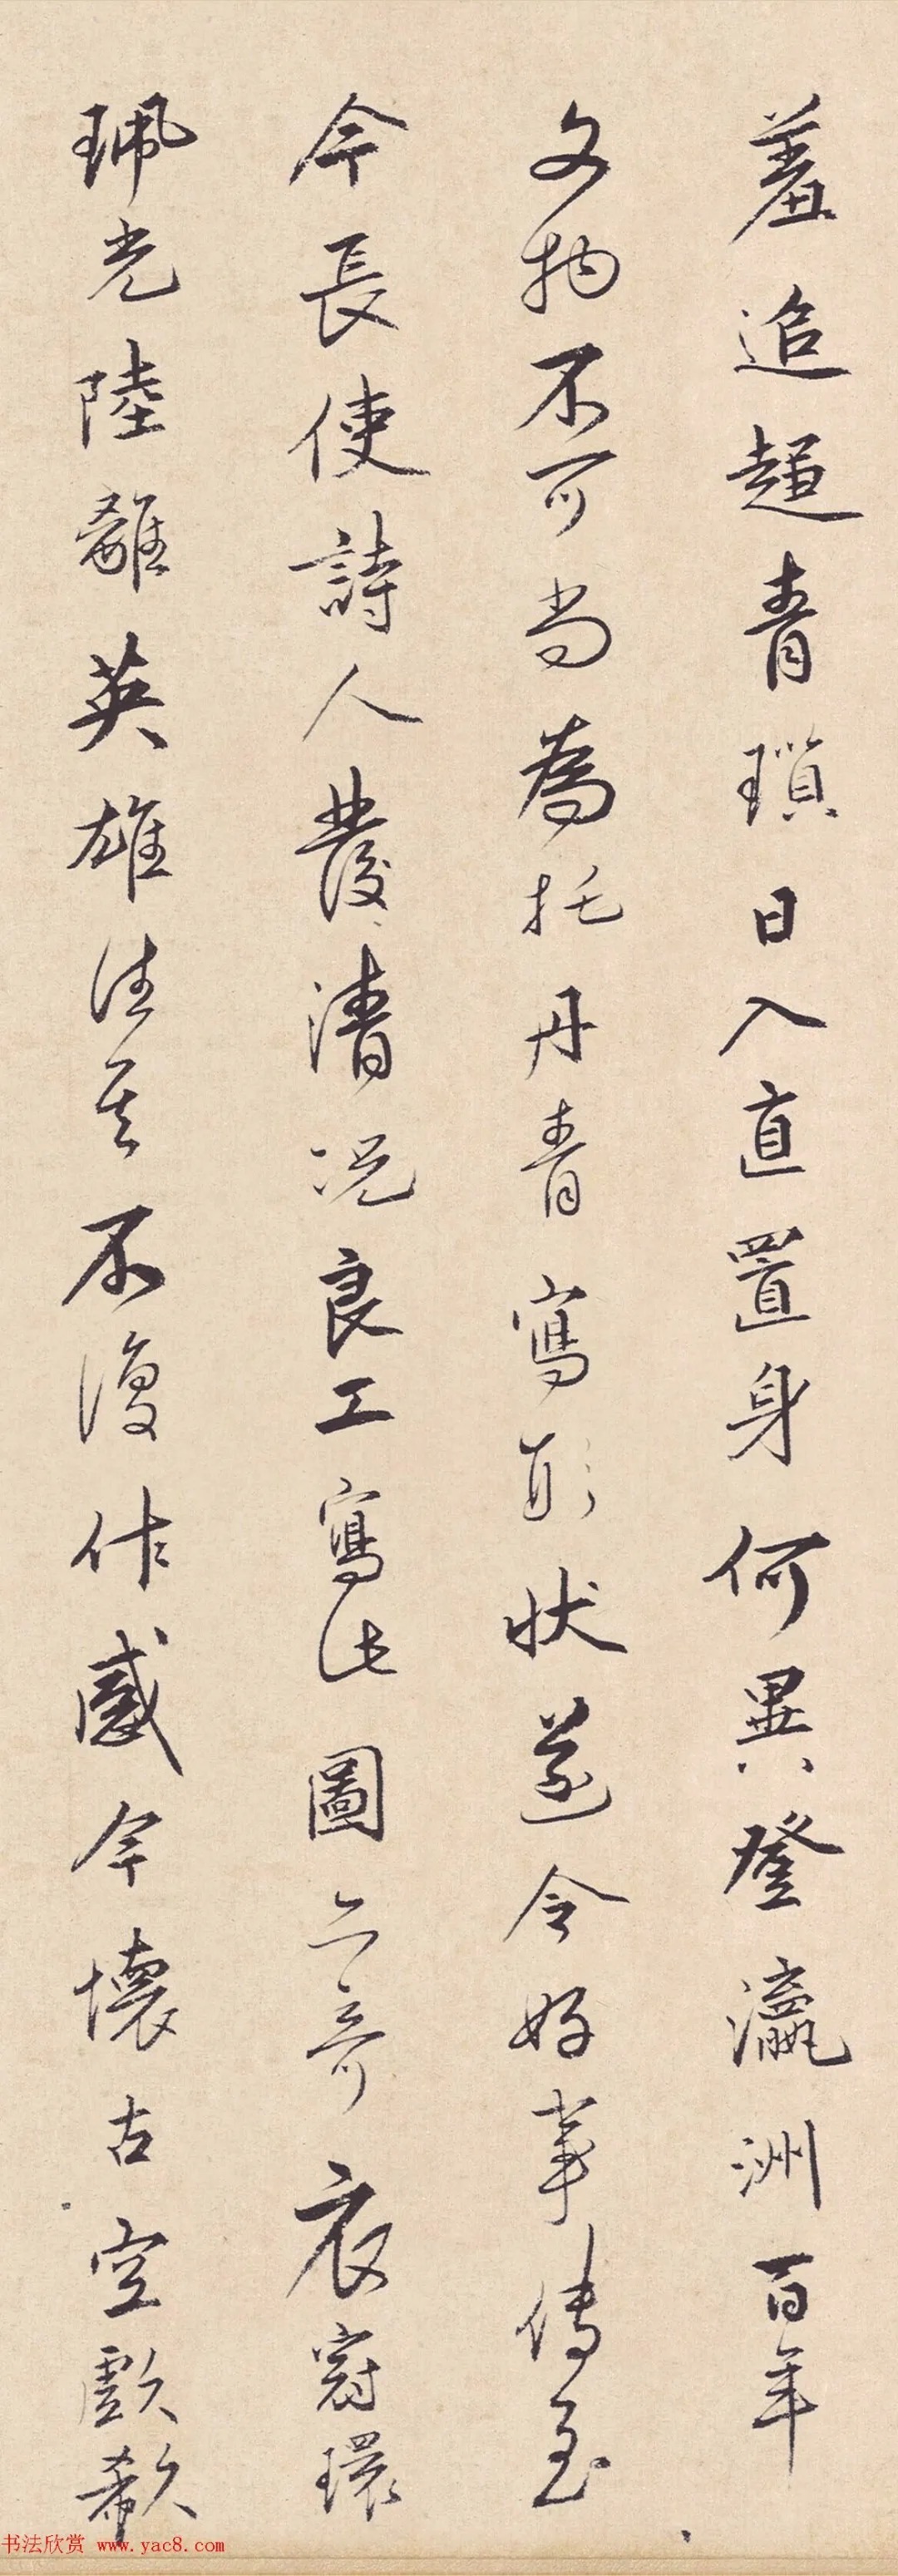 羞追趨青瑣日入直置身何異登瀛洲百年
文物不可當為托丹青寫形狀遂令好事傳至
今長使詩人發清況良工寫此圖亦奇衣冠環
珮光陸離英雄往矣不復作感今懷古空歔欷
书法欣赏 www.yac8.com